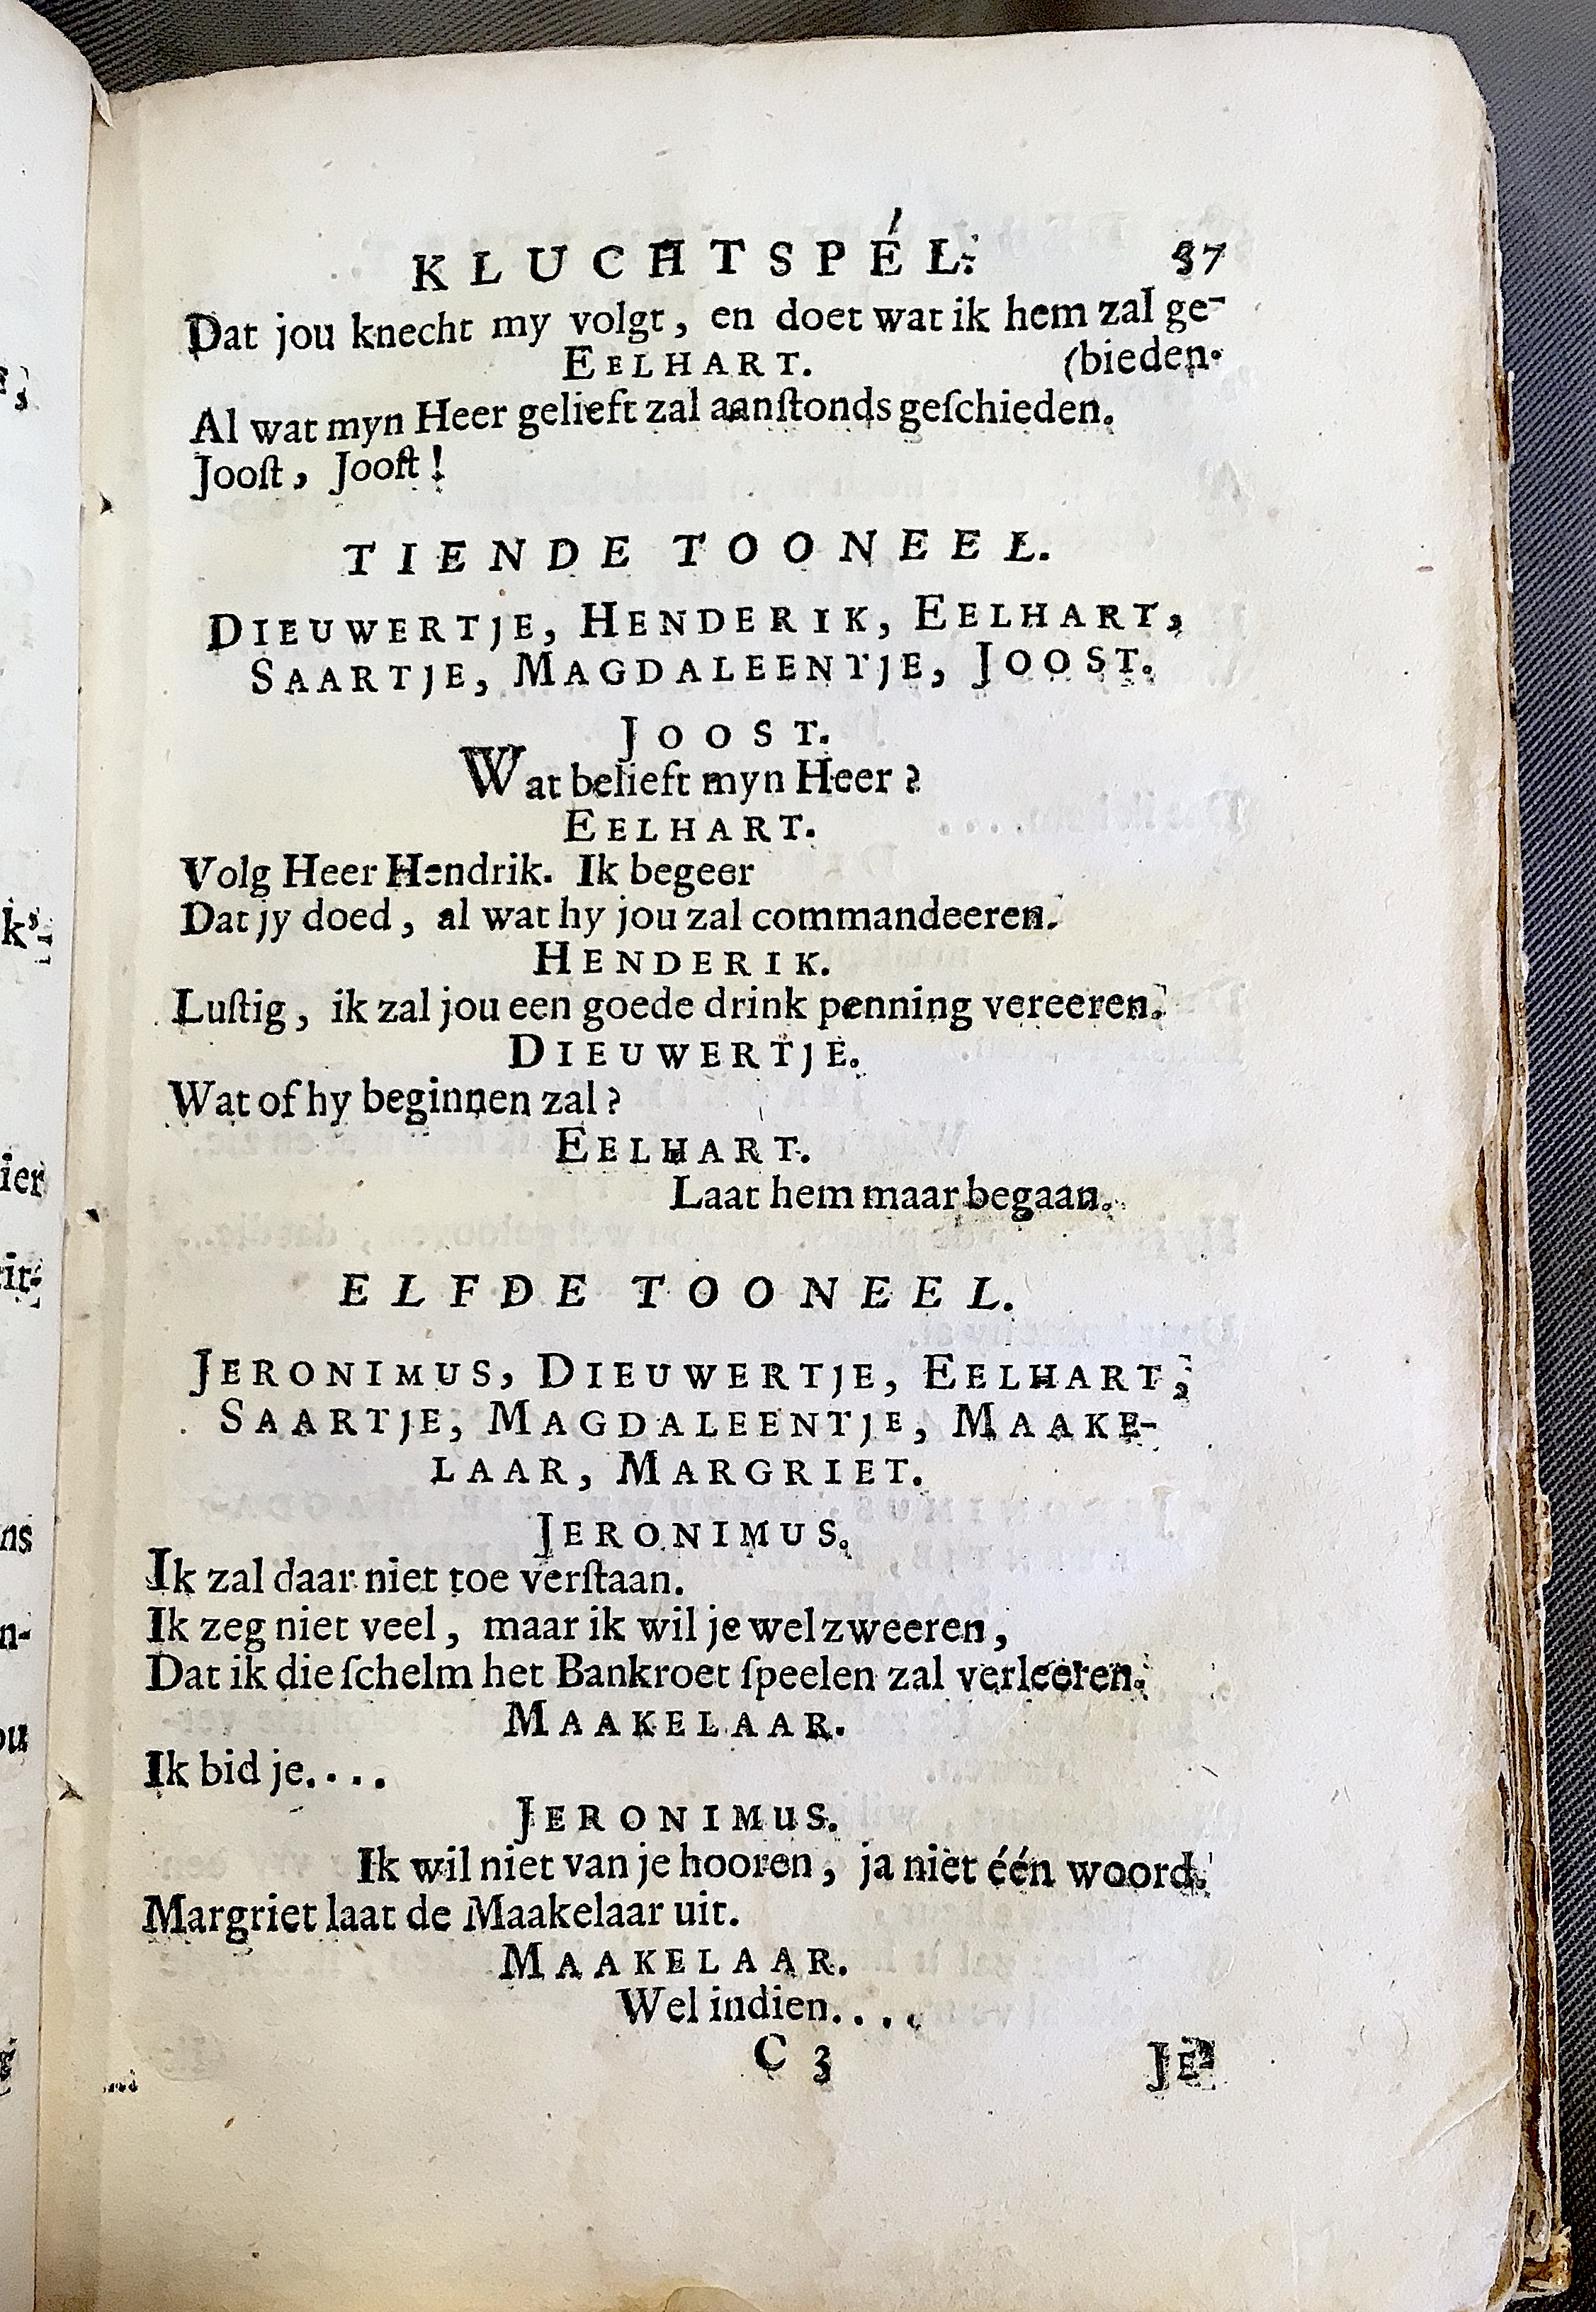 KLUCHTSPÉL. 37
Dat jou knecht my volgt, en doet wat ik hem zal ge-
EELHART. (bieden.
Al wat myn Heer gelieft zal aanſtonds geſchieden.
Jooſt, Jooſt!
TIENDE TOONEEL.
DIEUWERTJE, HENDERIK, EELHART,
SAARTJE, MAGDALEENTJE, JOOST.
JOOST.
Wat belieft myn Heer?
EELHART.
Volg Heer Hendrik. Ik begeer
Dat jy doed, al wat hy jou zal commandeeren.
HENDERIK.
Luſtig, ik zal jou een goede drink penning vereeren.
DIEUWERTJE.
Wat of hy beginnen zal?
EELHART.
Laat hem maar begaan.
ELFDE TOONEEL.
JERONIMUS, DIEUWERTJE, EELHART,
SAARTJE, MAGDALEENTJE, MAAKE-
LAAR, MARGRIET.
JERONIMUS.
Ik zal daar niet toe verſtaan.
Ik zeg niet veel, maar ik wil je wel zweeren,
Dat ik die ſchelm het Bankroet ſpeelen zal verleeren.
MAAKELAAR.
Ik bid je....
JERONIMUS.
Ik wil niet van je hooren, ja niet één woord.
Margriet laat de Maakelaar uit.
MAAKELAAR.
Wel indien....
C 3 JE